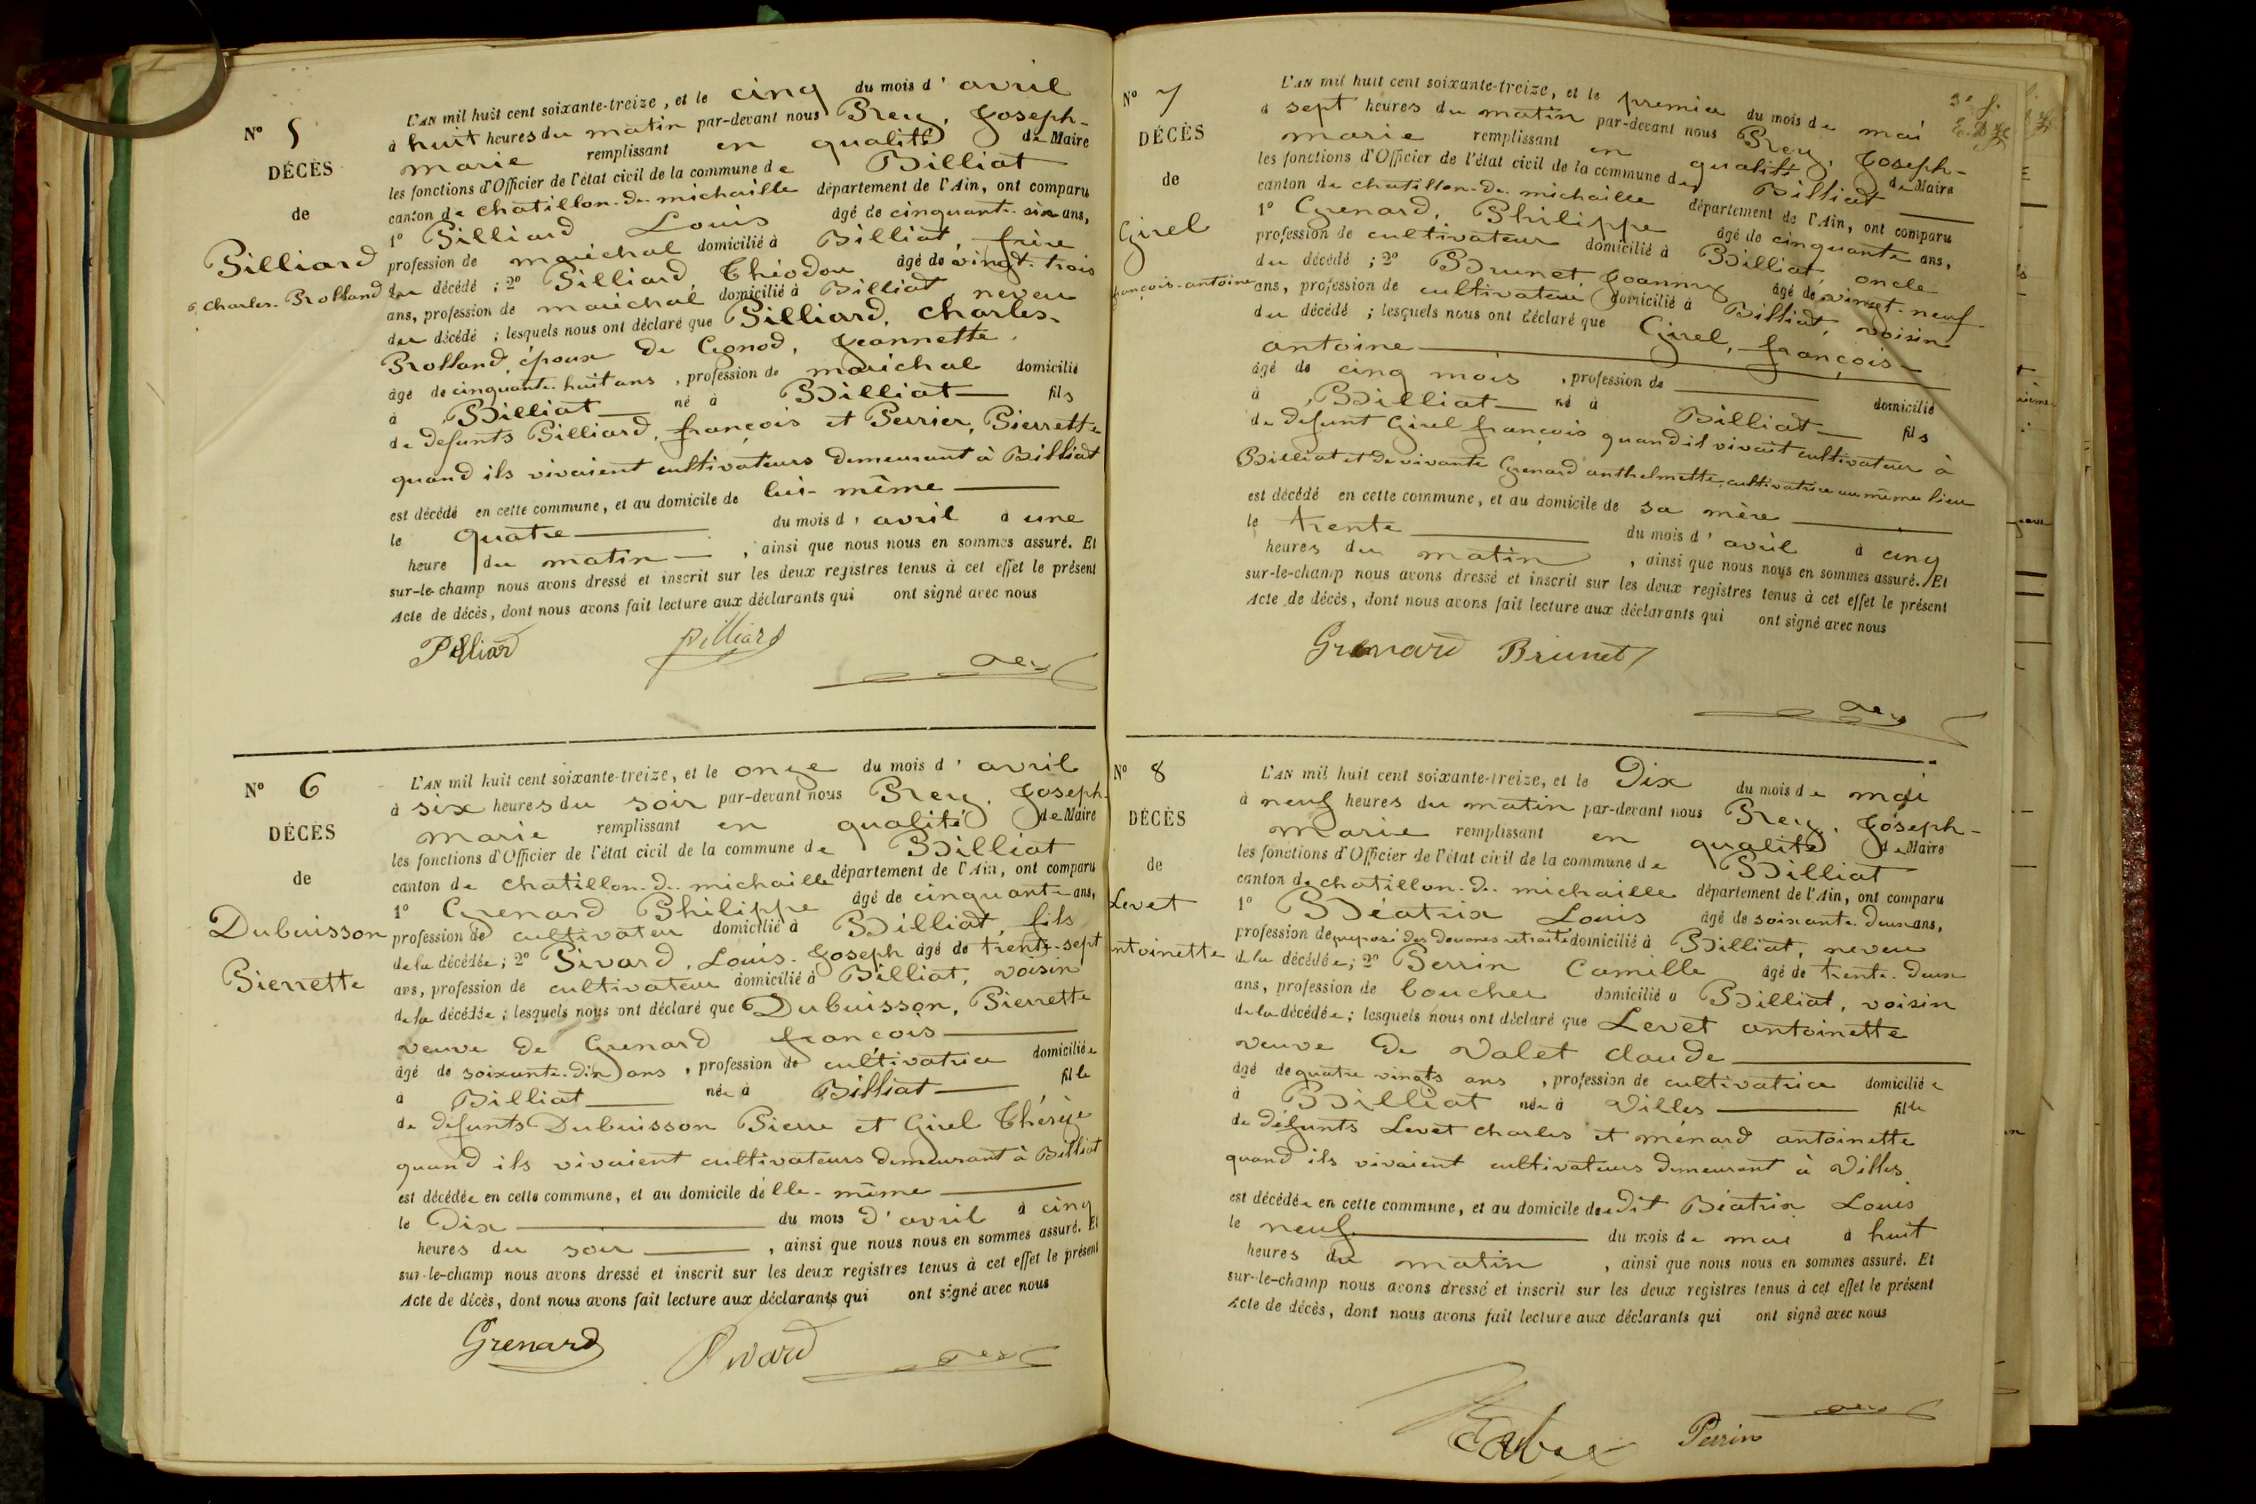 N° 5
DÉCÈS
de
Pilliard
Charles-Rolland
L'AN mil huit cent soixante-treize, et le cinq du mois d'avril
à huit heures du matin par-devant nous Rey, Joseph-
marie remplissant en qualité de Maire
les fonctions d'Officier de l'état civil de la commune de Billiat
canton de chatillon-de-michaille département de l'Ain, ont comparu
1° Pilliard Louis âgé de cinquante-six ans,
profession de maréchal domicilié à Billiat, frère
du décédé ; 2° Pilliard, Théodore âgé de vingt-trois
ans, profession de maréchal domicilié à Billiat, neveu
du décédé ; lesquels nous ont déclaré que Pilliard, Charles-
Rolland, époux de Gonod, Jeannette,
âgé de cinquante-huit ans, profession de maréchal domicilié
à Billiat né à Billiat fils
de defunts Pilliard, françois et Perrier, Pierrette
quand ils vivaient cultivateurs demeurant à Billiat
est décédé en cette commune, et au domicile de lui-même
le quatre du mois d'avril à une
heure du matin, ainsi que nous nous en sommes assuré. Et
sur-le-champ nous avons dressé et inscrit sur les deux registres tenus à cet effet le présent
Acte de décès, dont nous avons fait lecture aux déclarants qui ont signé avec nous
Pilliard pilliard Rey
N° 6
DÉCÈS
de
Dubuisson
Pierrette
L'AN mil huit cent soixante-treize, et le onze du mois d'avril
à six heures du soir par-devant nous Rey, Joseph-
marie remplissant en qualité de Maire
les fonctions d'Officier de l'état civil de la commune de Billiat
canton de chatillon-de-michaille département de l'Ain, ont comparu
1° Grenard Philippe âgé de cinquante ans,
profession de cultivateur domicilié à Billiat, fils
de la décédée ; 2° Pivard, Louis-Joseph âgé de trente-sept
ans, profession de cultivateur domicilié à Billiat, voisin
de la décédée ; lesquels nous ont déclaré que Dubuisson, Pierrette
veuve de Grenard françois
âgé de soixante-dix ans, profession de cultivatrice domiciliée
à Billiat née à Billiat fille
de defunts Dubuisson Pierre et Girel Thérèse
quand ils vivaient cultivateurs demeurant à Billiat
est décédée en cette commune, et au domicile d'elle-même
le dix du mois d'avril à cinq
heures du soir, ainsi que nous nous en sommes assuré. Et
sur-le-champ nous avons dressé et inscrit sur les deux registres tenus à cet effet le présent
Acte de décès, dont nous avons fait lecture aux déclarants qui ont signé avec nous
Grenard Pivard Rey
N° 7
DÉCÈS
de
Girel
françois-antoine
L'AN mil huit cent soixante-treize, et le premier du mois de mai
à sept heures du matin par-devant nous Rey, Joseph-
marie remplissant en qualité de Maire
les fonctions d'Officier de l'état civil de la commune de Billiat
canton de chatillon-de-michaille département de l'Ain, ont comparu
1° Grenard, Philippe âgé de cinquante ans,
profession de cultivateur domicilié à Billiat, oncle
du décédé ; 2° Brunet, Joanny âgé de vingt-neuf
ans, profession de cultivateur domicilié à Billiat, voisin
du décédé ; lesquels nous ont déclaré que Girel, françois-
antoine
âgé de cinq mois, profession de domicilié
à Billiat né à Billiat fils
de defunt Girel françois quand il vivait cultivateur à
Billiat et de vivante Grenard anthelmette cultivatrice au même lieu
est décédé en cette commune, et au domicile de sa mère
le trente du mois d'avril à cinq
heures du matin, ainsi que nous nous en sommes assuré. Et
sur-le-champ nous avons dressé et inscrit sur les deux registres tenus à cet effet le présent
Acte de décès, dont nous avons fait lecture aux déclarants qui ont signé avec nous
Grenard Brunet
Rey
N° 8
DÉCÈS
de
Levet
ntoinette
L'AN mil huit cent soixante-treize, et le Dix du mois de mai
à neuf heures du matin par-devant nous Rey, Joseph-
marie remplissant en qualité de Maire
les fonctions d'Officier de l'état civil de la commune de Billiat
canton de chatillon-de-michaille département de l'Ain, ont comparu
1° Béatrix Louis âgé de soixante-deux ans,
profession de preposé des douanes retraité domicilié à Billiat, neveu
de la décédée ; 2° Perrin Camille âgé de trente-deux
ans, profession de boucher domicilié à Billiat, voisin
de la décédée ; lesquels nous ont déclaré que Levet antoinette
veuve de Valet claude
âgé de quatre vingts ans, profession de cultivatrice domiciliée
à Billiat née à Villes fille
de défunts Levet charles et ménard antoinette
quand ils vivaient cultivateurs demeurant à Villes
est décédée en cette commune, et au domicile du dit Béatrix Louis
le neuf du mois de mai à huit
heures du matin, ainsi que nous nous en sommes assuré. Et
sur-le-champ nous avons dressé et inscrit sur les deux registres tenus à cet effet le présent
Acte de décès, dont nous avons fait lecture aux déclarants qui ont signé avec nous
Perrin Rey